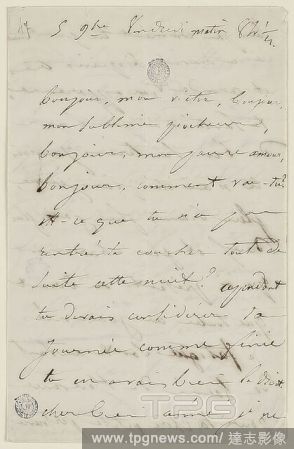 5 9bre Vendredi matin 8h ½
bonjour, mon victor, bonjour
mon sublime piocheur,
bonjour, mon pauvre amour,
bonjour, comment vas-tu?
est-ce que tu n'a pas
rentré te coucher tout de
suite cette nuit? cependant
tu devais considérer ta
journée comme finie
tu en avais bien le droit
cher bien aimé je ne
TPG
www.tpgnews.com / 達志影像